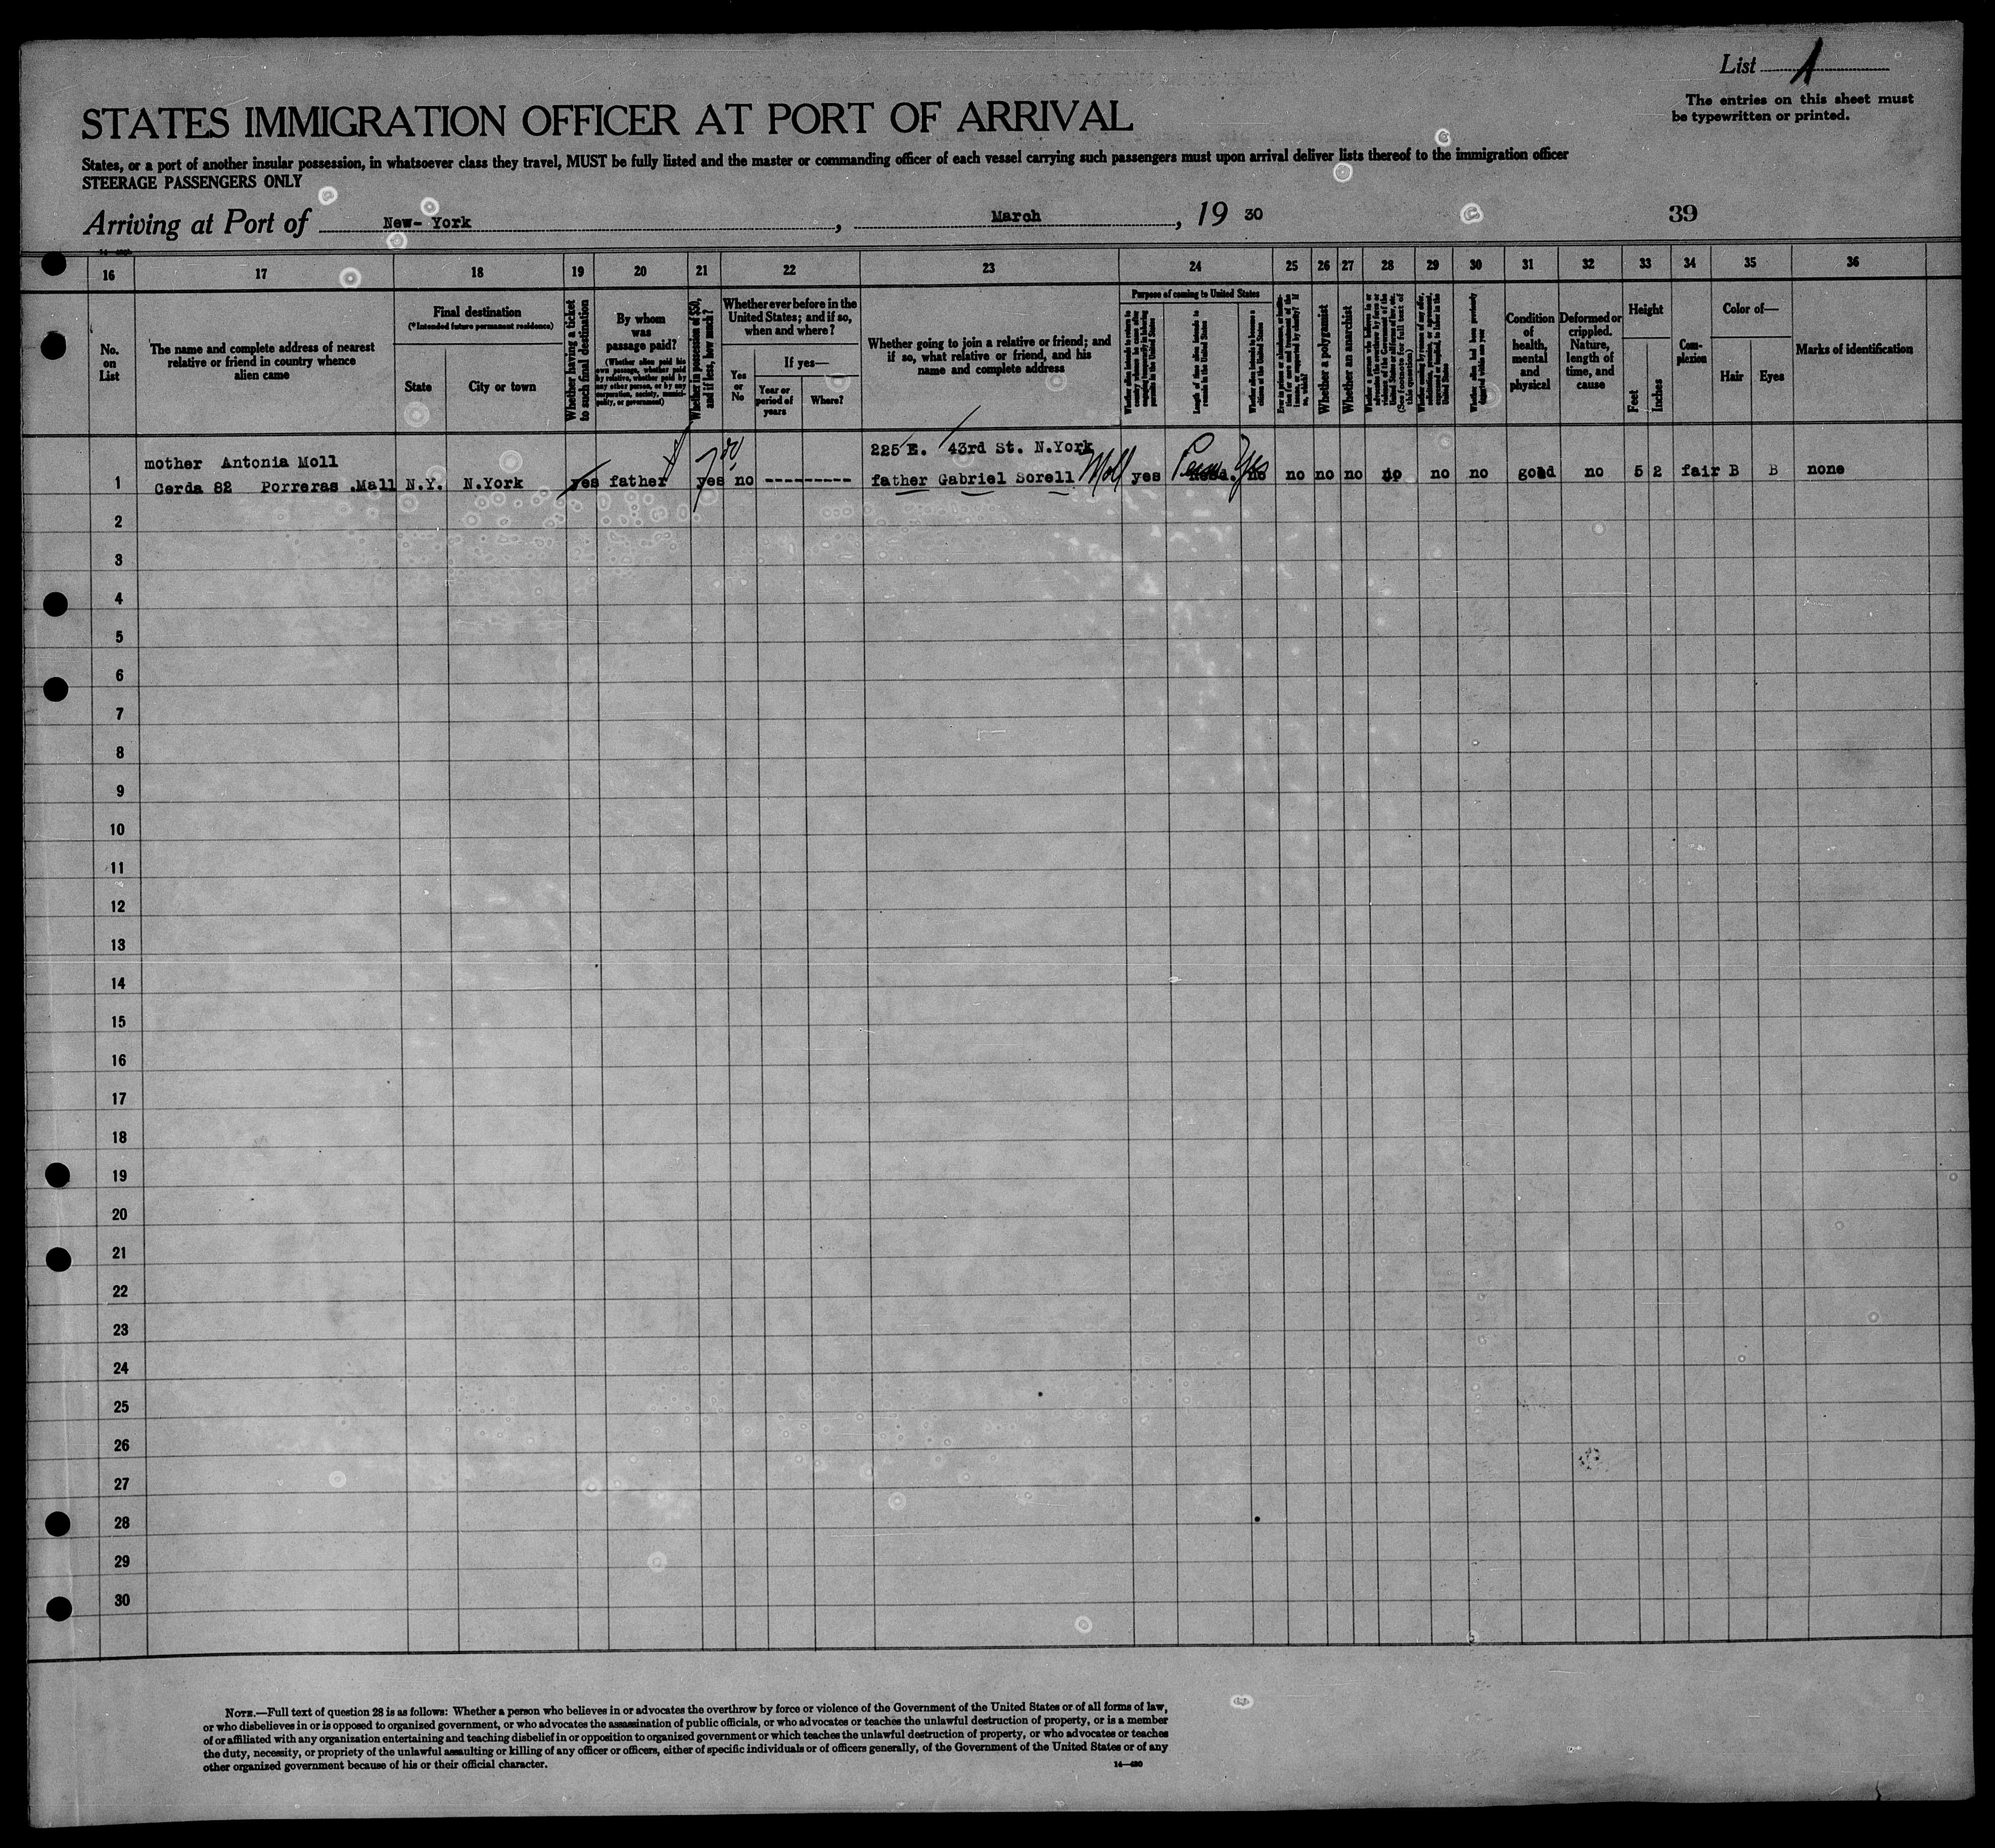 List 1
The entries on this sheet must
be typewritten or printed.
STATES IMMIGRATION OFFICER AT PORT OF ARRIVAL
States, or a port of another insular possession, in whatsoever class they travel, MUST be fully listed and the master or commanding officer of each vessel carrying such passengers must upon arrival deliver lists thereof to the immigration officer
STEERAGE PASSENGERS ONLY
Arriving at Port of New- York, March, 19 30
39
16 17 18 19 20 21 22 23 24 25 26 27 28 29 30 31 32 33 34 35 36
No.
on
List
The name and complete address of nearest
relative or friend in country whence
alien came
Final destination
(*Intended future permanent residence)
State
City or town
Whether having a ticket
to such final destination
By whom
was
passage paid?
(Whether alien paid his
own passage, whether paid
by relative, whether paid by
any other person, or by any
corporation, society, munici-
pality, or government)
Whether in possession of $50,
and if less, how much?
Whether ever before in the
United States; and if so,
when and where?
Yes
or
No
If yes—
Year or
period of
years
Where?
Whether going to join a relative or friend; and
if so, what relative or friend, and his
name and complete address
Purpose of coming to United States
Length of time alien intends to
remain in the United States
Whether alien intends to become a
citizen of the United States
Whether a polygamist
Whether an anarchist
Condition
of
health,
mental
and
physical
Deformed or
crippled.
Nature,
length of
time, and
cause
Height
Feet
Inches
Com-
plexion
Color of—
Hair
Eyes
Marks of identification
mother Antonia Moll
225 E. 43rd St. N.York
1 Cerda 82 Porreras .Mall N.Y. N.York yes father yes no ---------- father Gabriel Sorell Moll yes Perm. Yes no no no no no no no good no 5 2 fair B B none
2
3
4
5
6
7
8
9
10
11
12
13
14
15
16
17
18
19
20
21
22
23
24
25
26
27
28
29
30
NOTE.—Full text of question 28 is as follows: Whether a person who believes in or advocates the overthrow by force or violence of the Government of the United States or of all forms of law,
or who disbelieves in or is opposed to organized government, or who advocates the assassination of public officials, or who advocates or teaches the unlawful destruction of property, or is a member
of or affiliated with any organization entertaining and teaching disbelief in or opposition to organized government or which teaches the unlawful destruction of property, or who advocates or teaches
the duty, necessity, or propriety of the unlawful assaulting or killing of any officer or officers, either of specific individuals or of officers generally, of the Government of the United States or of any
other organized government because of his or their official character.
14—430